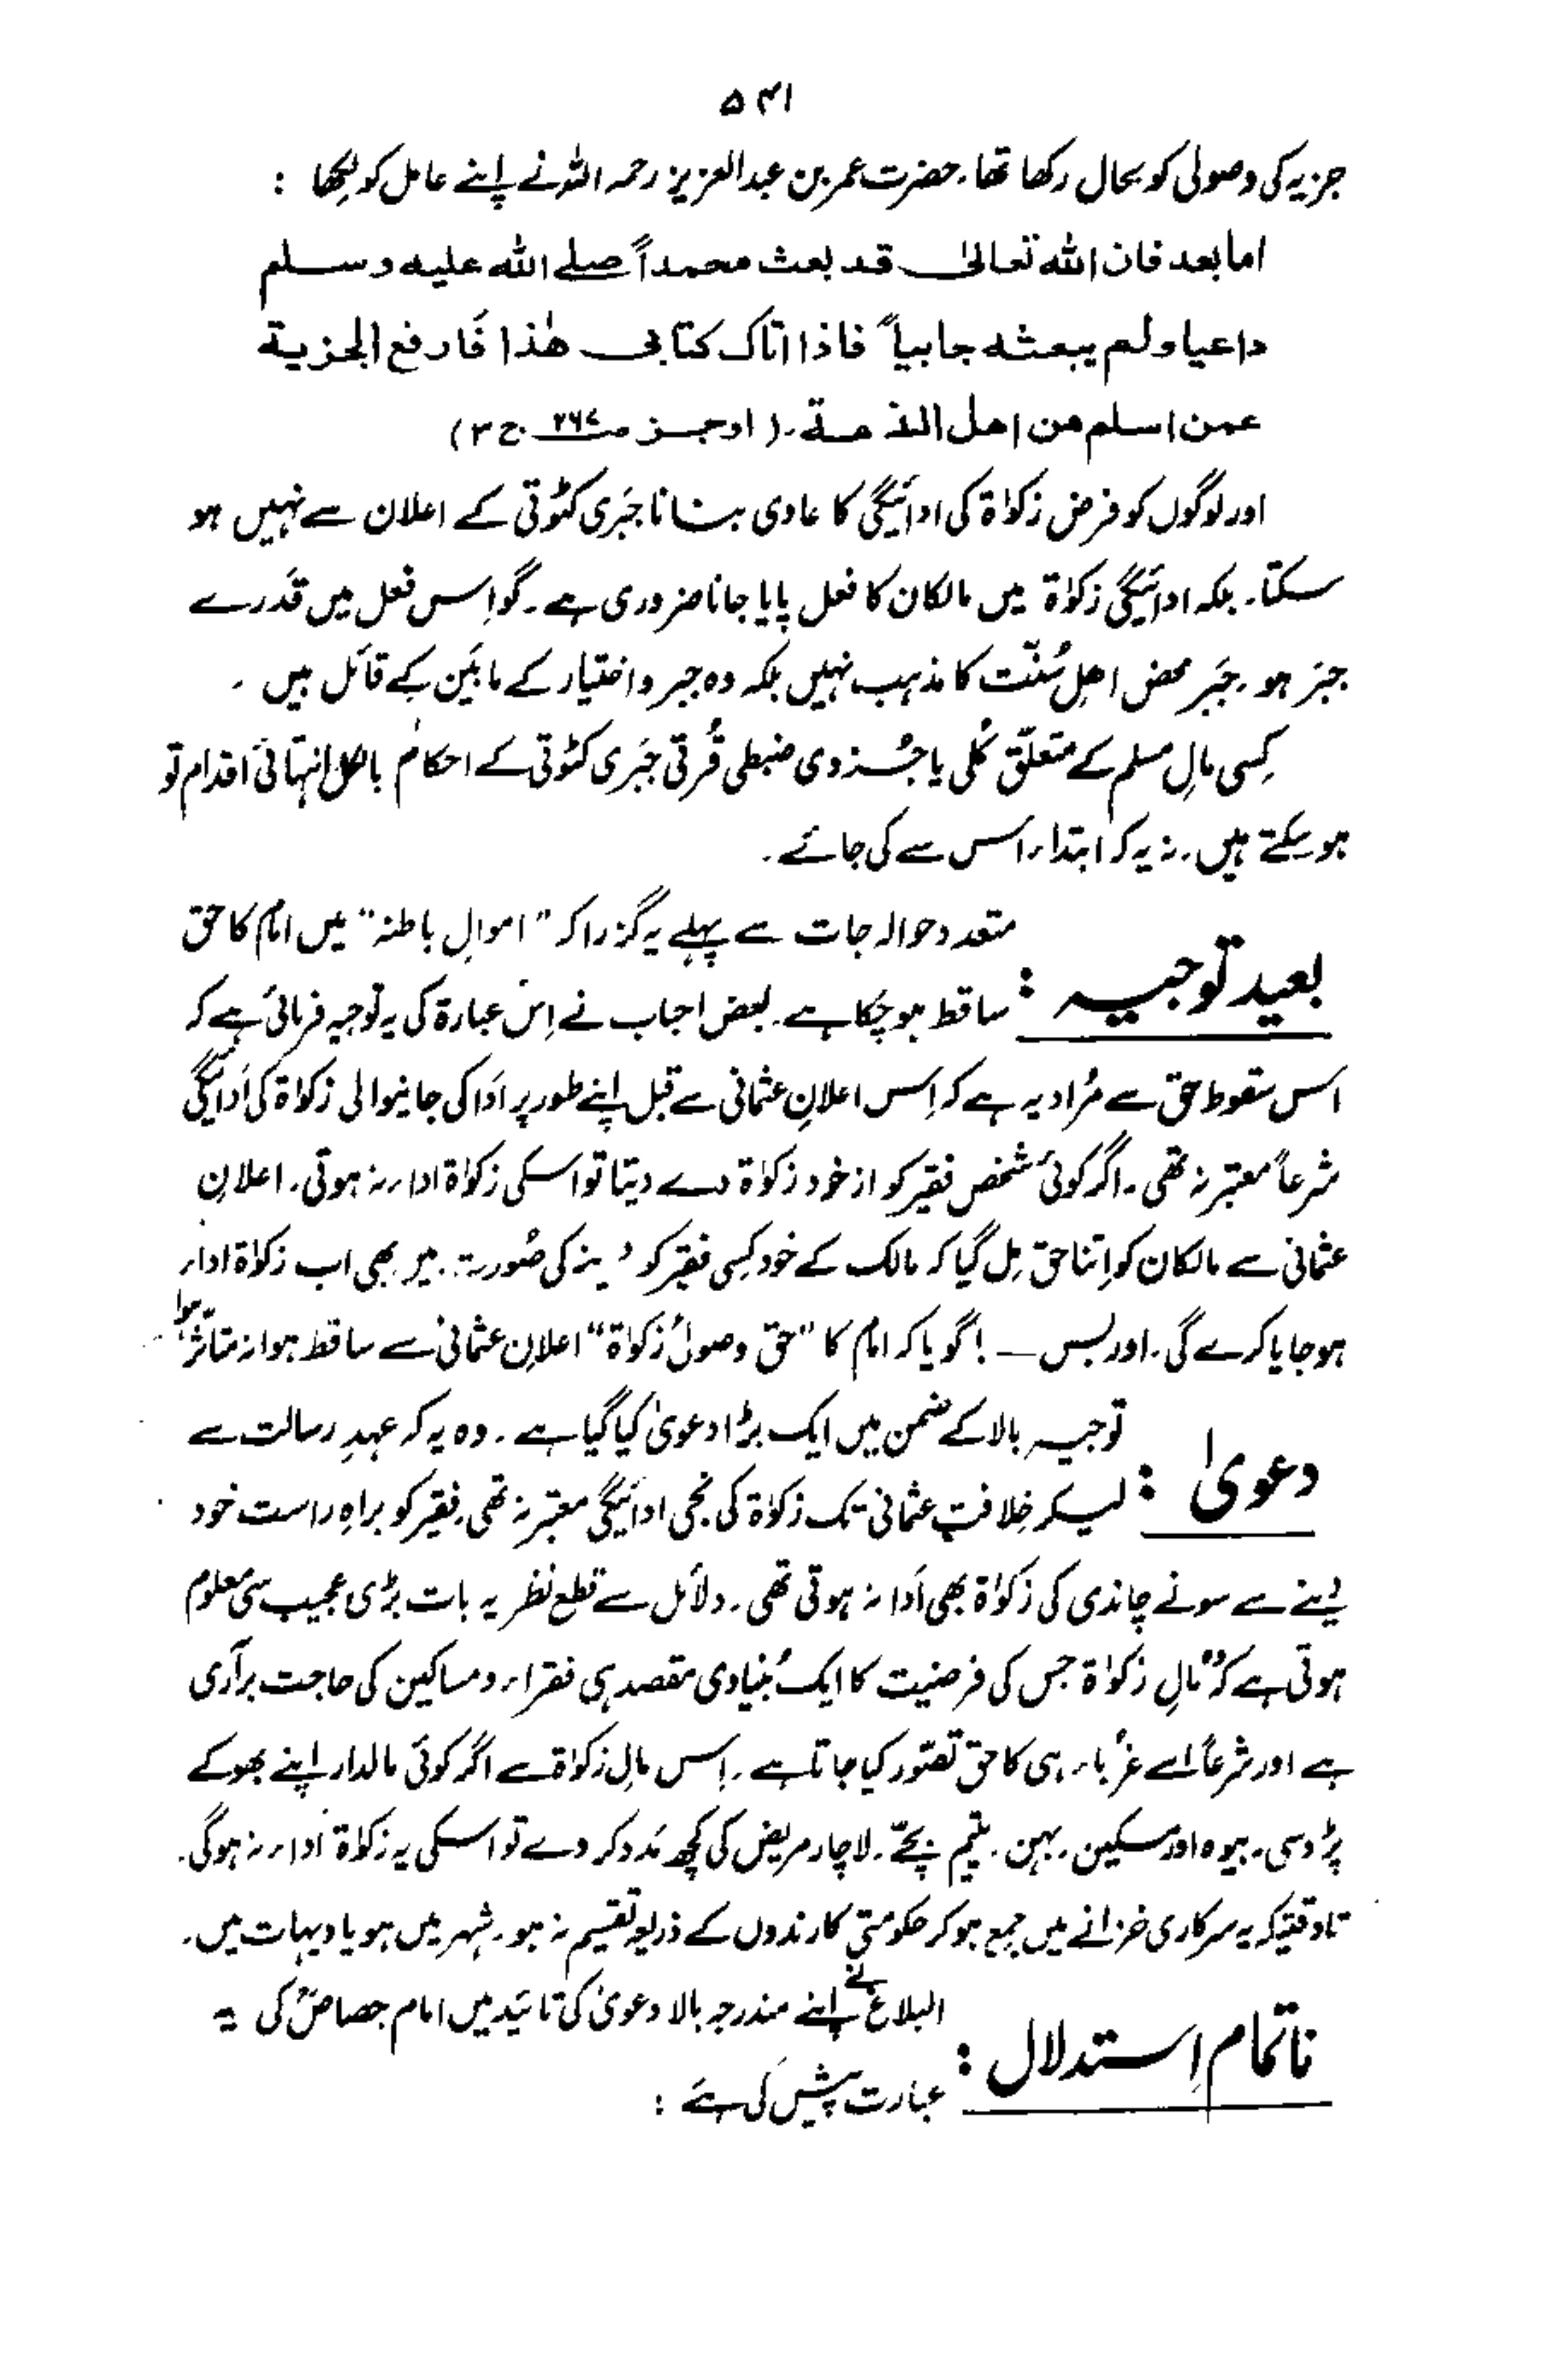 ۵۴۱
جزیہ کی وصولی کو بحال رکھا تھا۔ حضرت عمر بن عبدالعزیز رحمہ اللہ نے اپنے عامل کو لکھا :
اما بعد فان الله تعالیٰ قد بعث محمداً صلے الله علیه وسلم
داعیا ولم یبعثه جابیاً فاذا اتاک کتابی هٰذا فَارفع الجزیة
عمن اسلم من اهل الذمة۔ (اوجز ص۲۶۷ ج۳)
اور لوگوں کو فرض زکوٰۃ کی ادائیگی کا عادی بنانا جَبری کٹوتی کے اعلان سے نہیں ہو
سکتا۔ بلکہ ادائیگی زکوٰۃ میں مالکان کا فعل پایا جانا ضروری ہے۔ گو اِس فعل میں قَدرے
جبر ہو۔ جَبر محض اھلِ سُنّت کا مذہب نہیں بلکہ وہ جبر واختیار کے مابَین کے قائل ہیں ۔
کِسی مالِ مسلم کے متعلّق کُلی یا جُزوی ضبطی قُرقی جَبری کٹوتی کے احکام بالکل انتہائی اقدام تو
ہو سکتے ہیں۔ نہ یہ کہ ابتداء اس سے کی جائے ۔
متعدد حوالہ جات سے پہلے یہ گزرا کہ "اموالِ باطنہ" میں امام کا حق
بعید توجیہ : ساقط ہو چکا ہے۔ بعض احباب نے اِس عبارۃ کی یہ توجیہ فرمائی ہے کہ
اس سقوط حق سے مُراد یہ ہے کہ اِس اعلانِ عثمانی سے قبل اپنے طور پر اَدا کی جانیوالی زکوٰۃ کی اَدائیگی
شرعاً معتبر نہ تھی۔ اگر کوئی شخص فقیر کو از خود زکوٰۃ دے دیتا تو اسکی زکوٰۃ ادا نہ ہوتی۔ اعلانِ
عثمانی سے مالکان کو اِتنا حق مِل گیا کہ مالک کے خود کِسی فقیر کو دینے کی صُورت میں بھی اب زکوٰۃ اداء
ہو جایا کرے گی۔ اور بس — ! گویا کہ امام کا "حق وصولُ زکوٰۃ" اعلانِ عثمانی سے ساقط ہوا نہ متاثر ہوا
توجیہ بالا کے ضمن میں ایک بڑا دعویٰ کیا گیا ہے۔ وہ یہ کہ عہدِ رسالت سے
دعویٰ : لیکر خِلافتِ عثمانی تک زکوٰۃ کی نجی ادائیگی معتبر نہ تھی۔ فقیر کو براہِ راست خود
دینے سے سونے چاندی کی زکوٰۃ بھی اَدا نہ ہوتی تھی۔ دلائل سے قطع نظر یہ بات بڑی عجیب سی معلوم
ہوتی ہے کہ "مالِ زکوٰۃ جس کی فرضیت کا ایک بُنیادی مقصد ہی فقراء ومساکین کی حاجت برآری
ہے اور شرعاً اسے غرُباء ہی کا حق تصوّر کیا جاتا ہے۔ اِس مالِ زکوٰۃ سے اگر کوئی مالدار اپنے بھوکے
پڑوسی۔ بیوہ اور مسکین۔ بہن۔ یتیم بچّے۔ لاچار مریض کی کچھ مَدد کر دے تو اسکی یہ زکوٰۃ اَداء نہ ہوگی۔
تاوقتیکہ یہ سرکاری خزانے میں جمع ہو کر حکومتی کارندوں کے ذریعہ تقسیم نہ ہو۔ شہر میں ہو یا دیہات میں۔
البلاغ نے اپنے مندرجہ بالا دعویٰ کی تائید میں امام جصاصؒ کی یہ
ناتمام اِستدلال : عبارت پیش کی ہے :